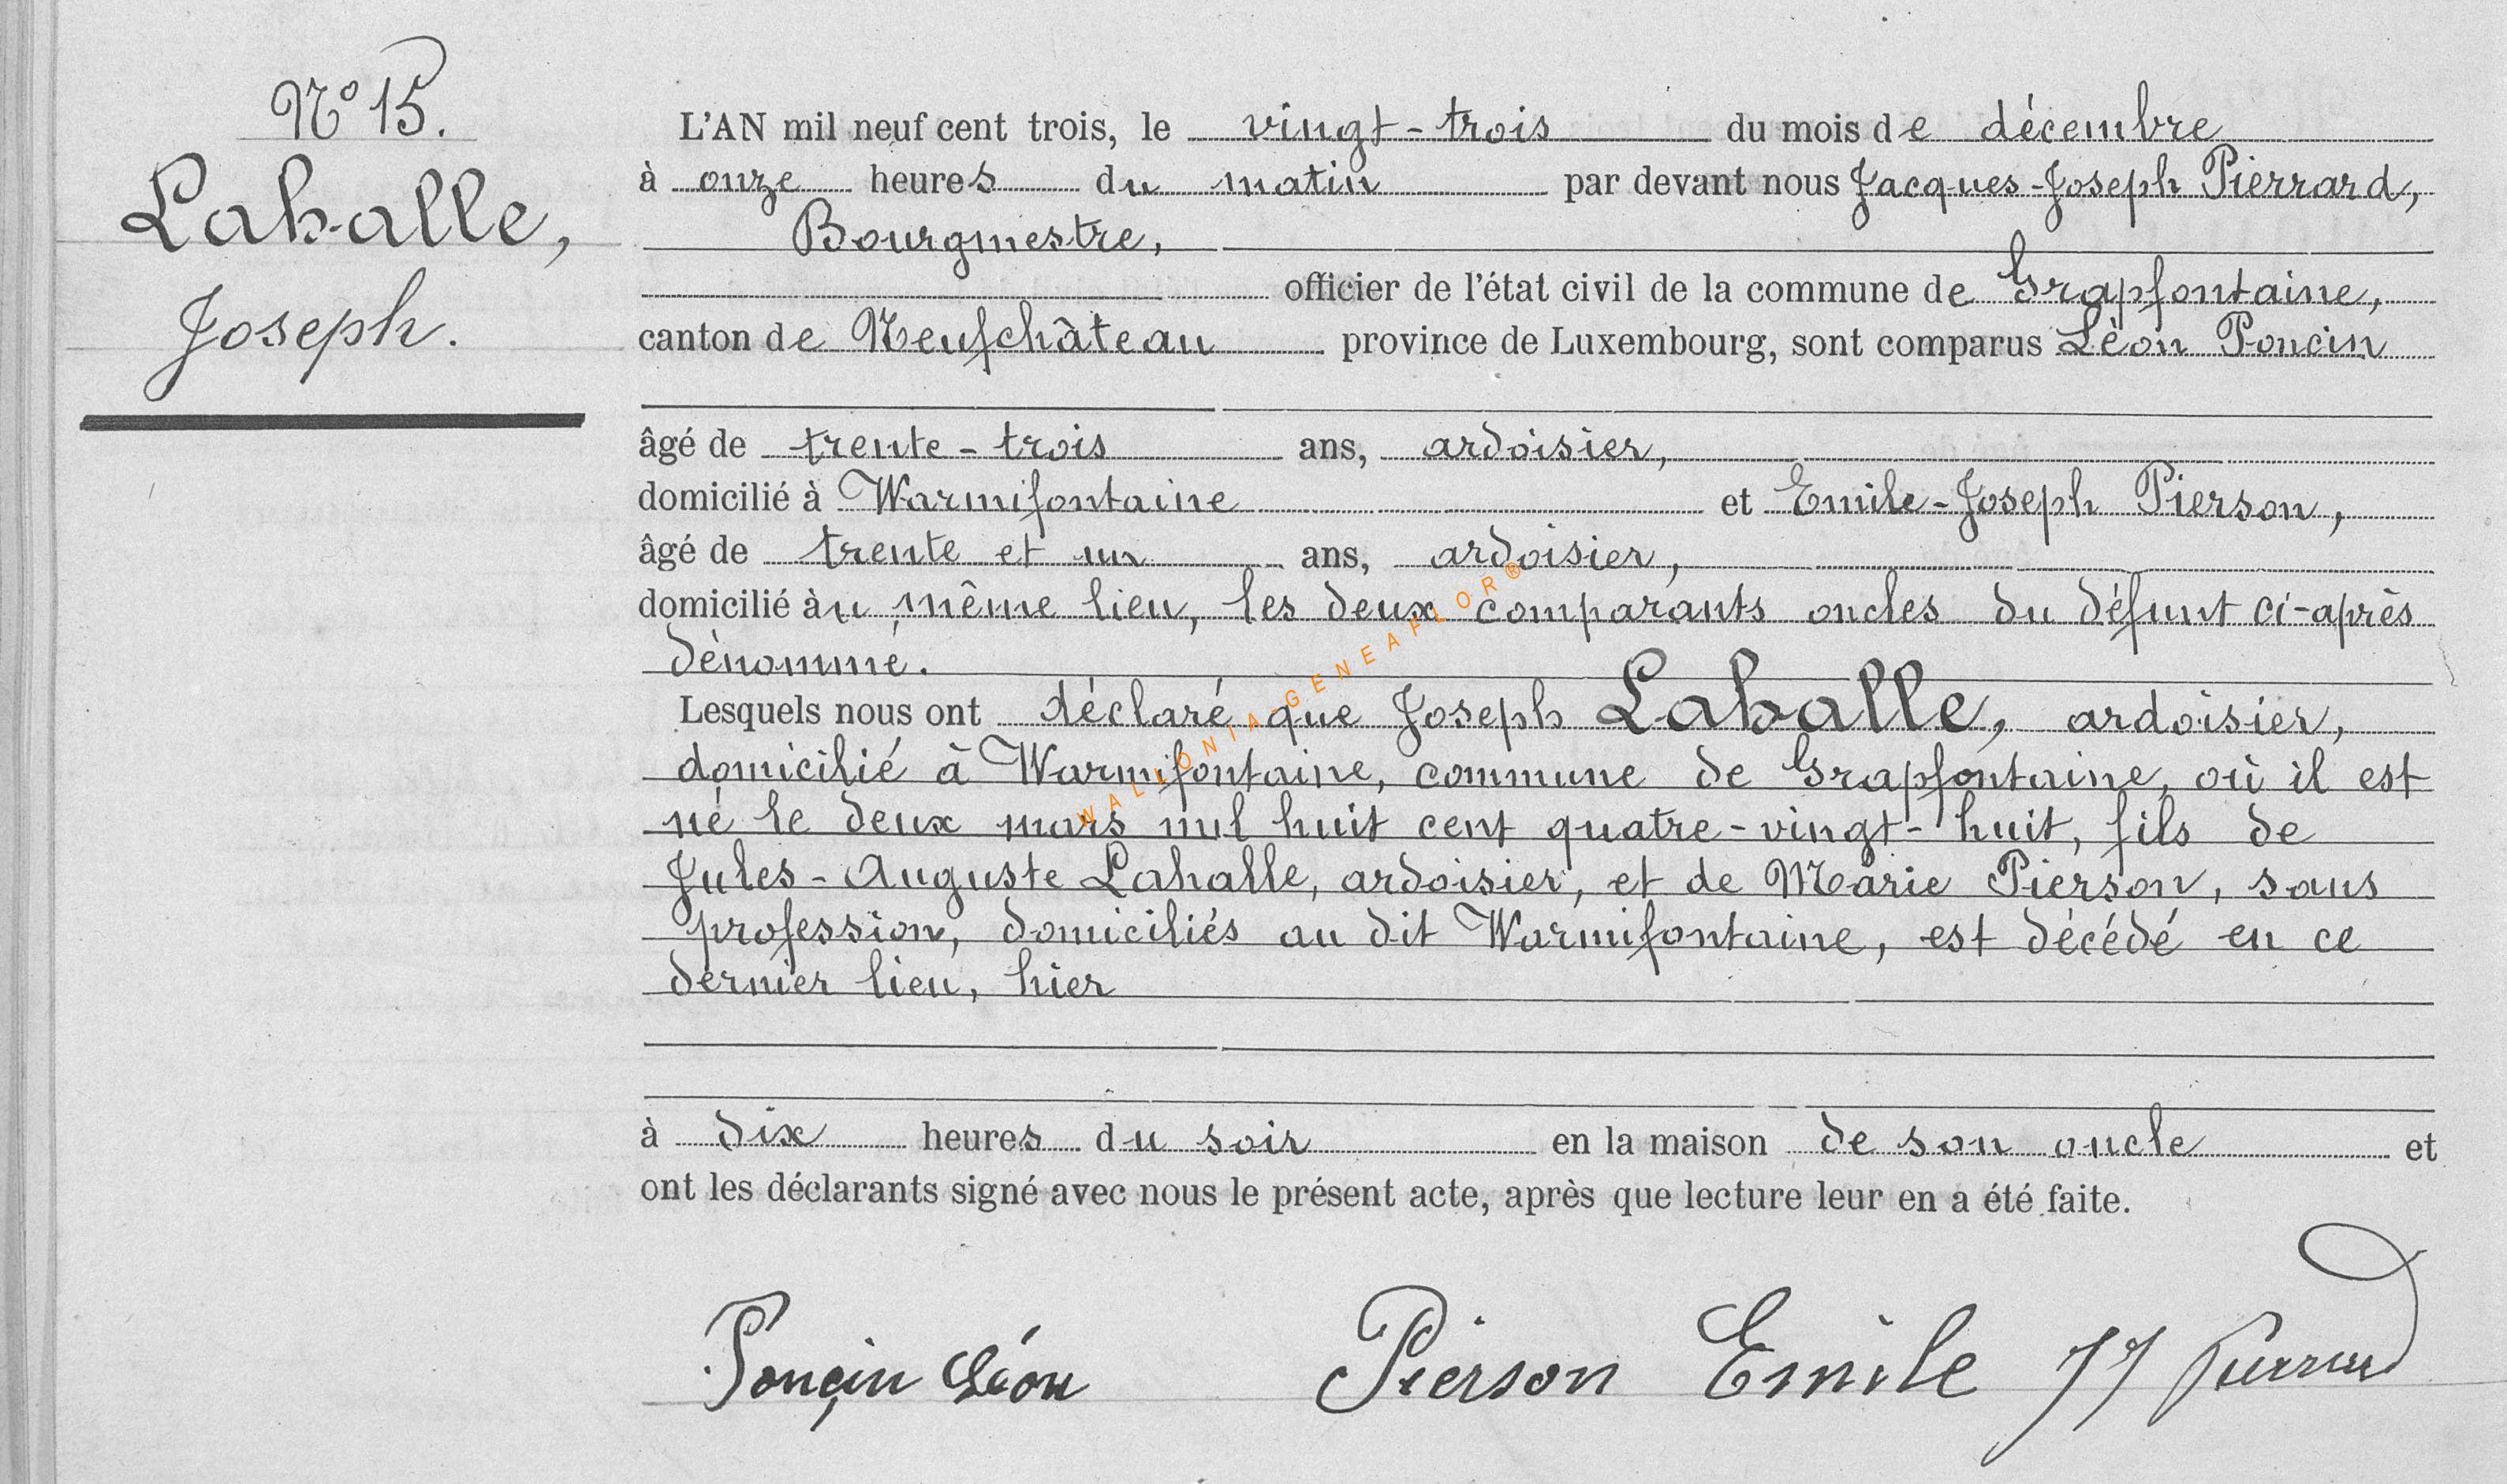 N° 15.
Lahalle,
Joseph.
L'AN mil neuf cent trois, le vingt-trois du mois de décembre
à onze heures du matin par devant nous Jacques-Joseph Pierrard,
Bourgmestre,
officier de l'état civil de la commune de Grapfontaine,
canton de Neufchâteau province de Luxembourg, sont comparus Léon Poncin
âgé de trente-trois ans, ardoisier,
domicilié à Warmifontaine et Emile-Joseph Pierson,
âgé de trente et un ans, ardoisier,
domicilié au même lieu, les deux comparants oncles du défunt ci-après
dénommé.
Lesquels nous ont déclaré que Joseph Lahalle, ardoisier,
domicilié à Warmifontaine, commune de Grapfontaine, où il est
né le deux mars mil huit cent quatre-vingt-huit, fils de
Jules-Auguste Lahalle, ardoisier, et de Marie Pierson, sans
profession, domiciliés au dit Warmifontaine, est décédé en ce
dernier lieu, hier
à dix heures du soir en la maison de son oncle et
ont les déclarants signé avec nous le présent acte, après que lecture leur en a été faite.
Ponçin Léon Pierson Emile JJ Pierrard
WALLONIA-GENEAFLOR®